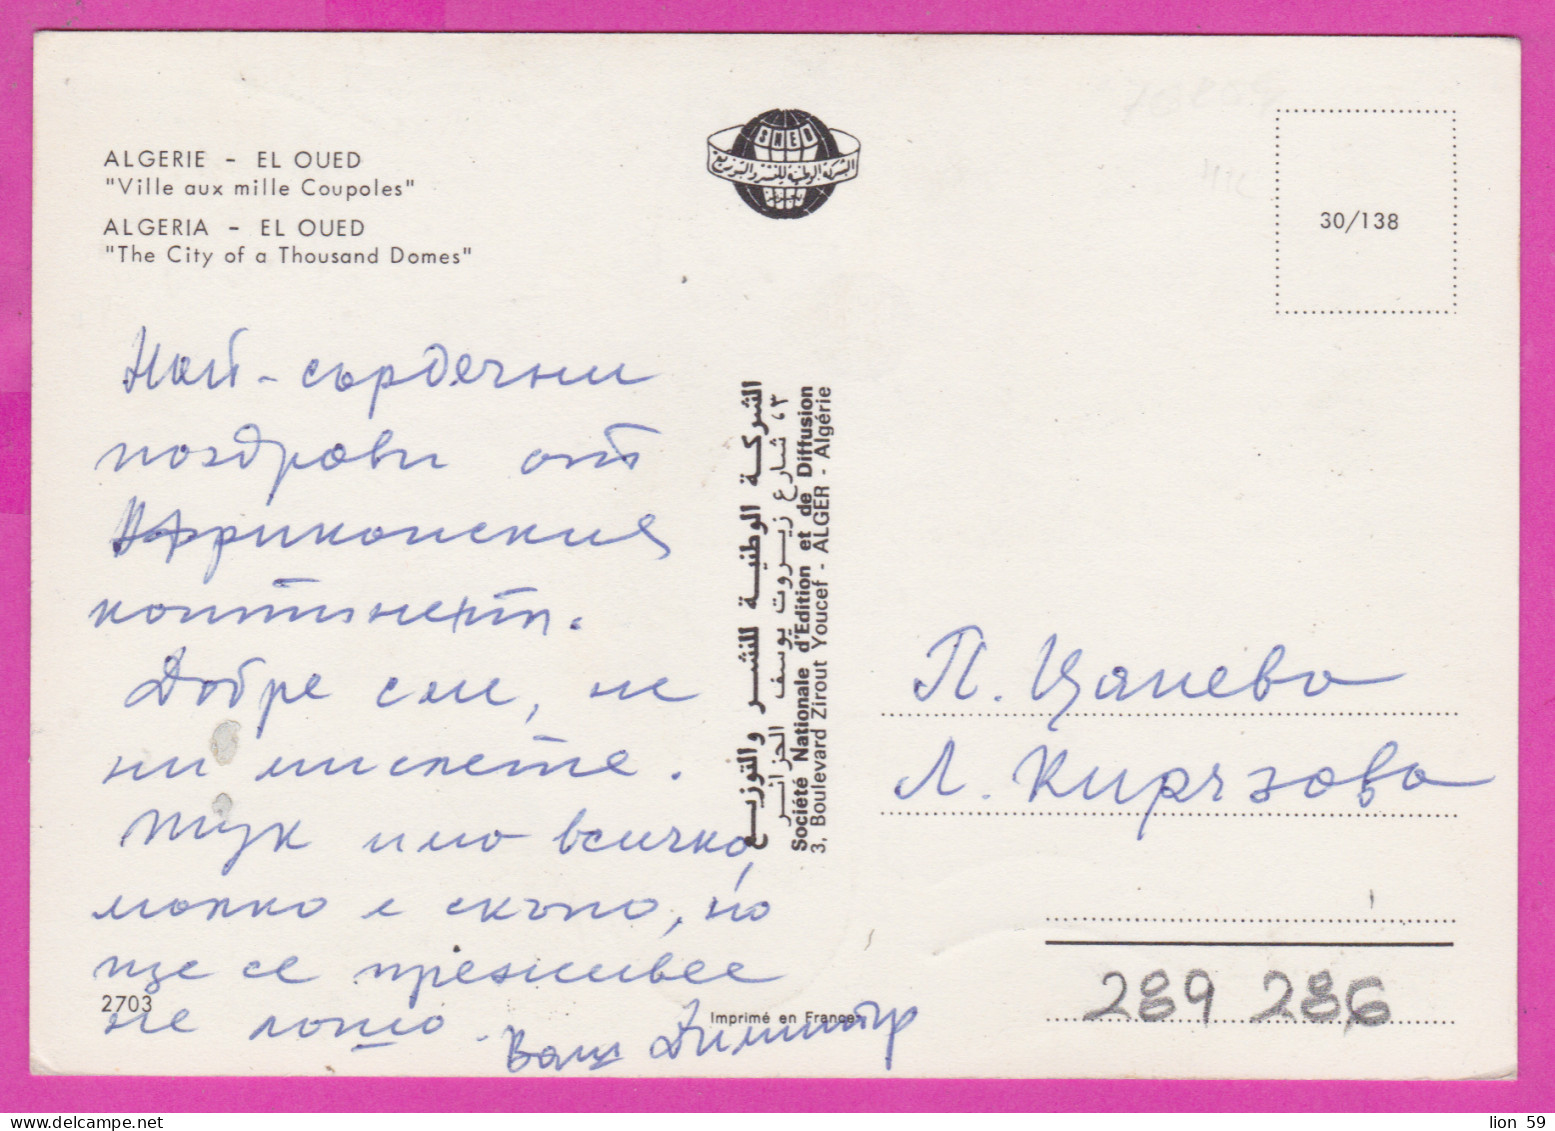 ALGERIE - EL OUED
"Ville aux mille Coupoles"
ALGERIA - EL OUED
"The City of a Thousand Domes"
SNED
الشركة الوطنية للنشر والتوزيع
30/138
Най-сърдечни
поздрави от
Африканския
континент.
Добре сме, не
ни мислете.
Тук има всичко,
малко е скъпо, но
ще се преживее
не лошо.
Ваш Димитър
2703
الشركة الوطنية للنشر والتوزيع
٣، شارع زيروت يوسف الجزائر
Société Nationale d'Edition et de Diffusion
3, Boulevard Zirout Youcef - ALGER - Algérie
Imprimé en France
П. Цанева
Л. Киргзова
289 286
lion 59